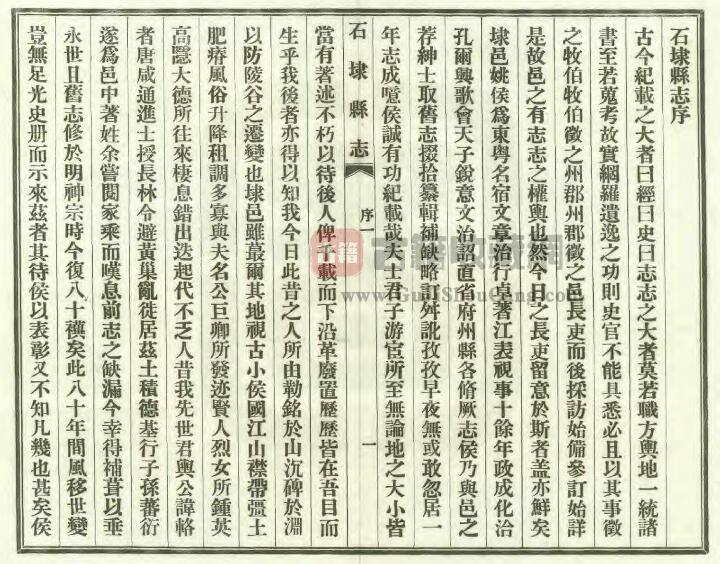 石埭縣志序
古今紀載之大者曰經曰史曰志志之大者莫若職方輿地一統諸
書至若蒐考故實綱羅遺逸之功則史官不能具悉必且以其事徵
之牧伯牧伯徵之州郡州郡徵之邑長吏而後採訪始備參訂始詳
是故邑之有志志之權輿也然今日之長吏留意於斯者盖亦鮮矣
埭邑姚侯爲東粤名宿文章治行卓著江表視事十餘年政成化治
孔爾興歌會天子銳意文治詔直省府州縣各脩厥志侯乃與邑之
荐紳士取舊志掇拾纂輯補缺略訂舛訛孜孜早夜無或敢忽居一
年志成噫侯誠有功紀載哉夫士君子游宦所至無論地之大小皆
石埭縣志
序一
一
當有著述不朽以待後人俾千載而下沿革廢置歷歷皆在吾目而
生乎我後者亦得以知我今日此昔之人所由勒銘於山沉碑於淵
以防陵谷之遷變也埭邑雖蕞爾其地視古小侯國江山襟帶彊土
肥瘠風俗升降租調多寡與夫名公巨卿所發迹賢人烈女所鍾英
高隱大德所往來棲息錯出迭起代不乏人昔我先世君輿公諱輅
者唐咸通進士授長林令避黄巢亂徙居茲土積德基行子孫蕃衍
遂爲邑中著姓余嘗閱家乘而嘆息前志之缺漏今幸得補葺以垂
永世且舊志修於明神宗時今復八十禩矣此八十年間風移世變
豈無足光史册而示來茲者其待侯以表彰又不知凡幾也甚矣侯
古籍收藏网
www.GuJiShouCang.com